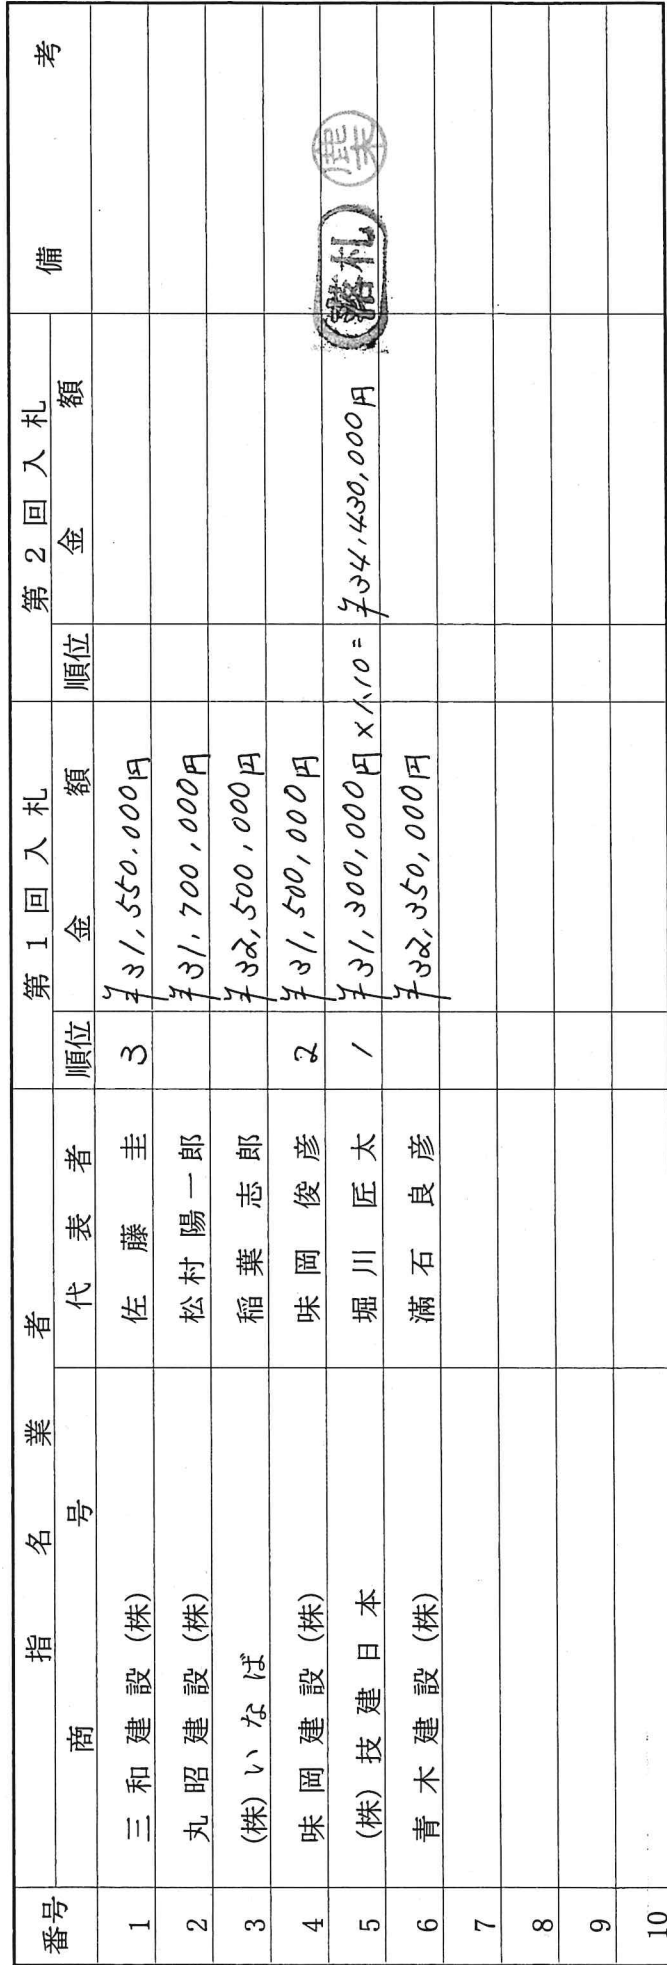 番号 指名業者 第1回入札 第2回入札 備考
商号 代表者 順位 金額 順位 金額
1 三和建設(株) 佐藤圭 3 ¥31,550,000円
2 丸昭建設(株) 松村陽一郎 ¥31,700,000円
3 (株)いなば 稲葉志郎 ¥32,500,000円
4 味岡建設(株) 味岡俊彦 2 ¥31,500,000円
5 (株)技建日本 堀川匠太 1 ¥31,300,000円 ×1.10= ¥34,430,000円 落札
6 青木建設(株) 満石良彦 ¥32,350,000円
7
8
9
10